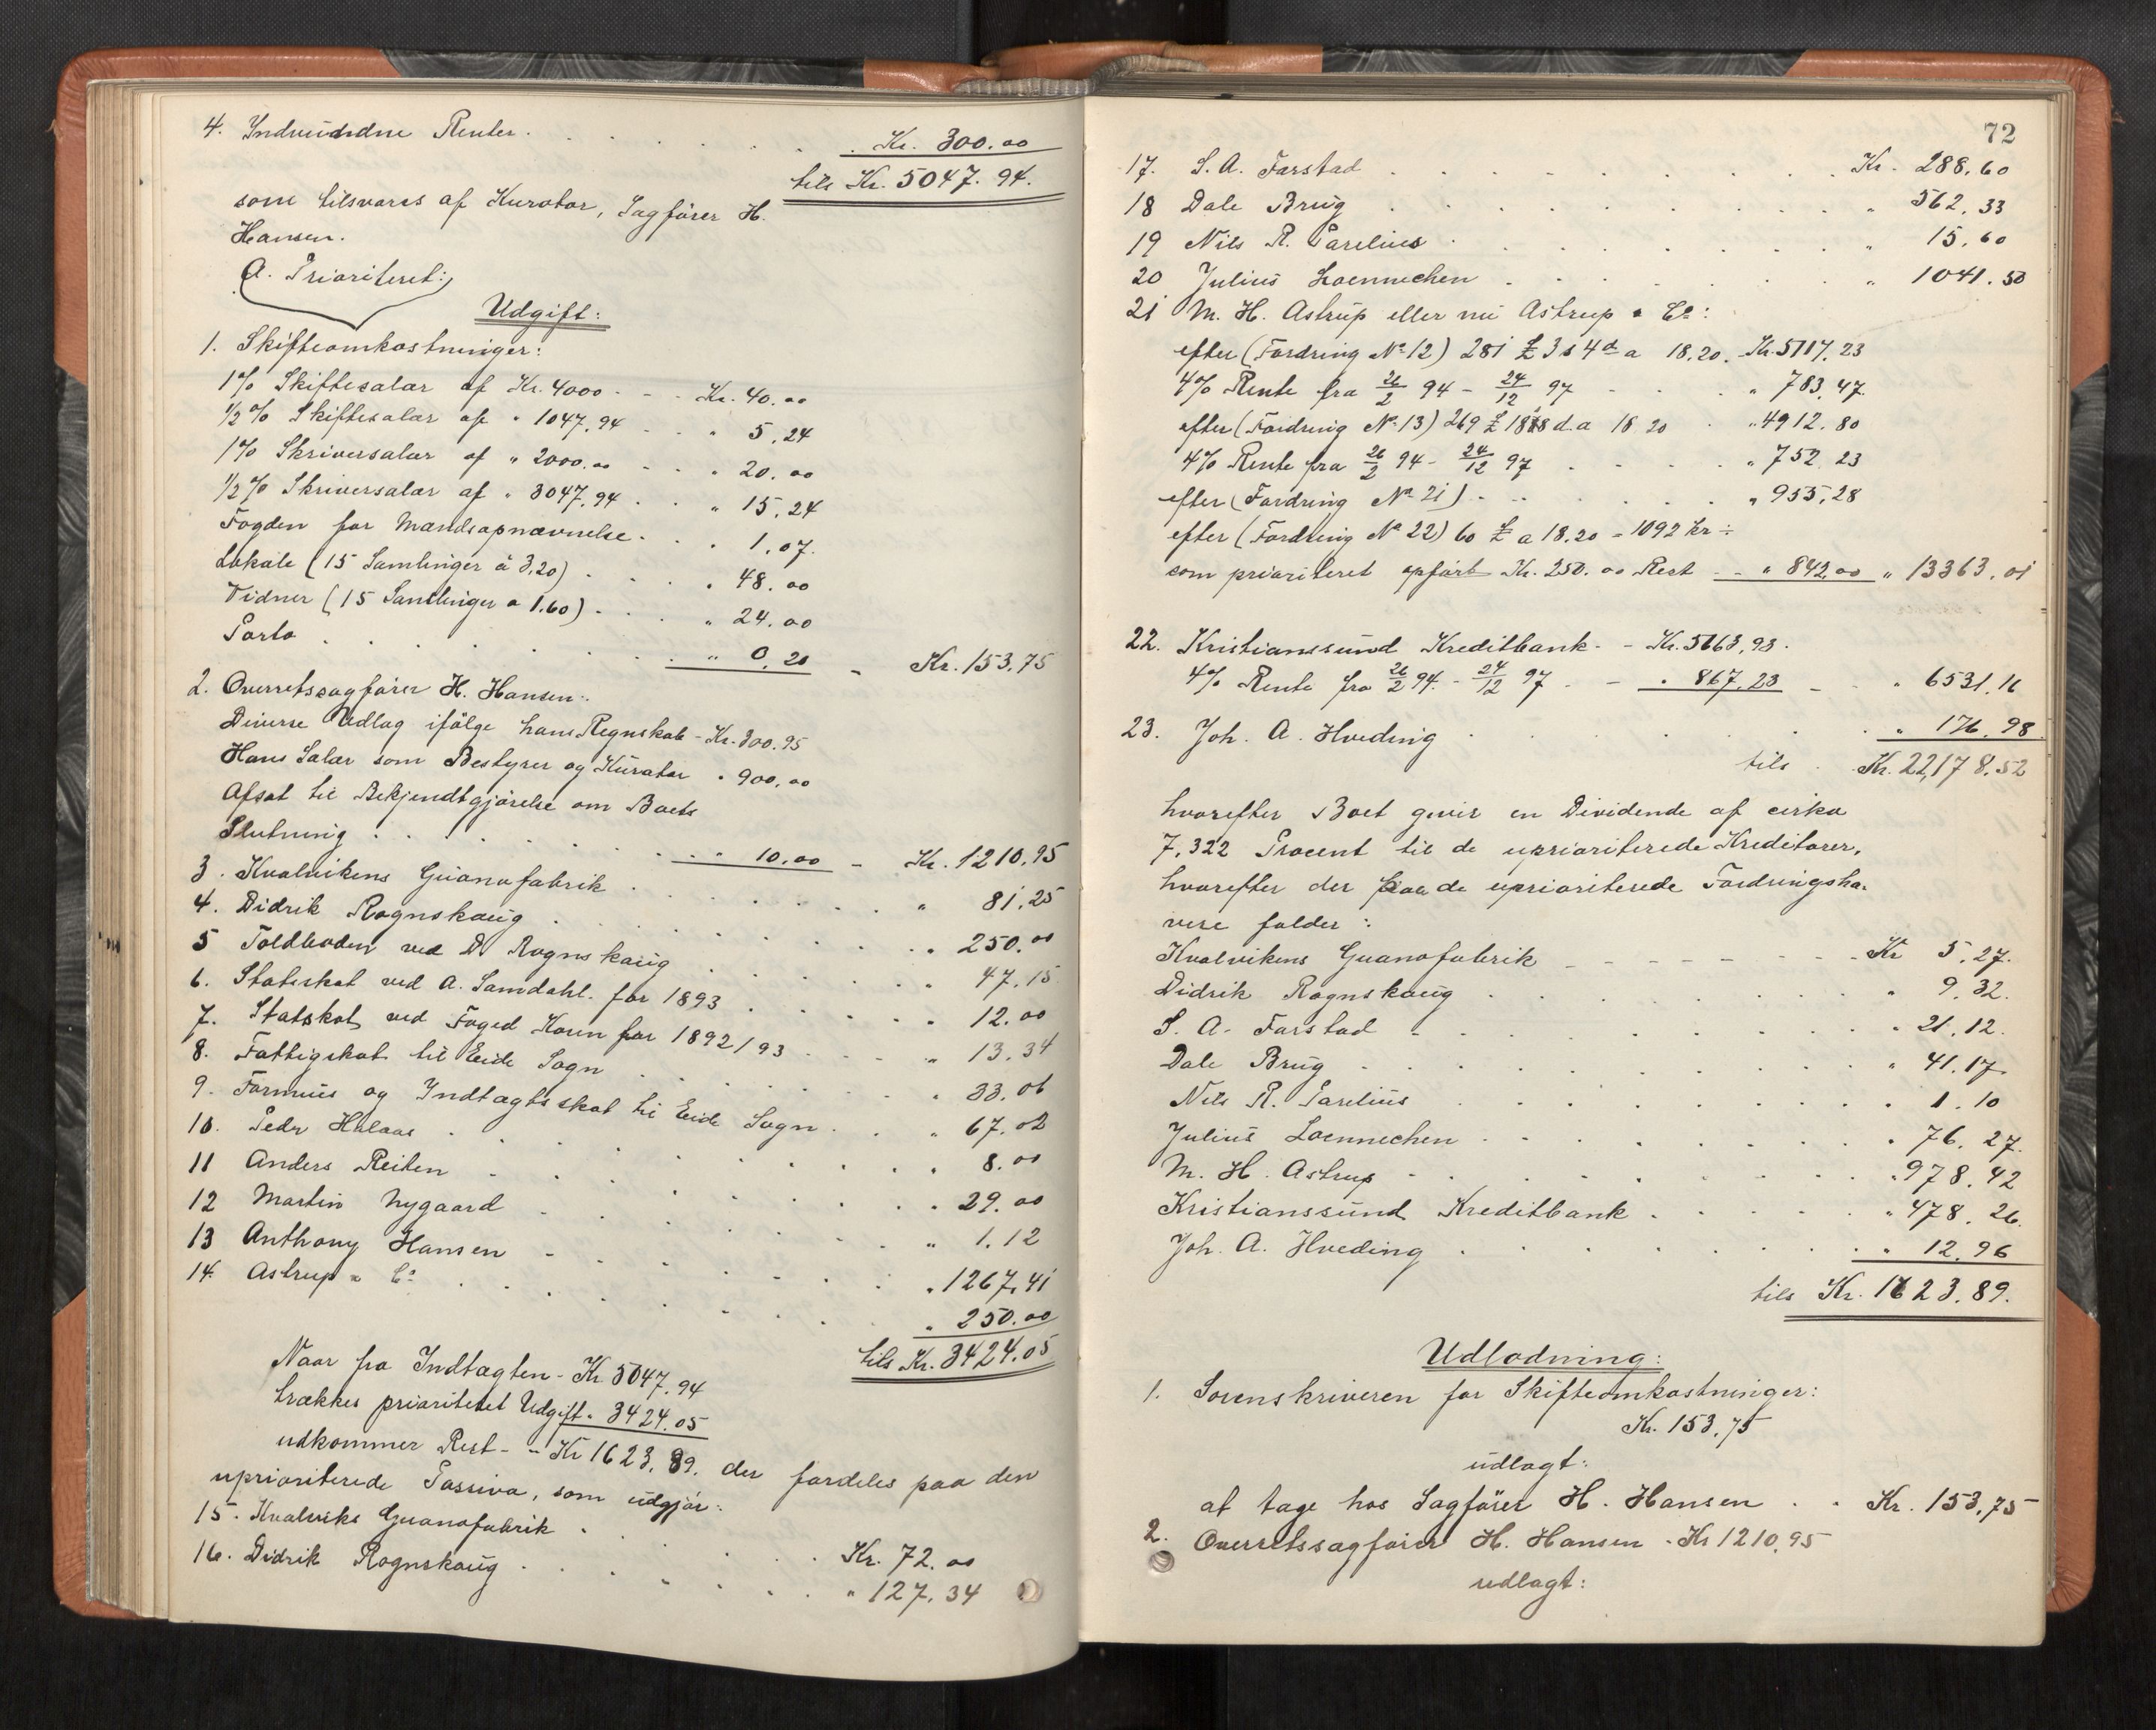 4. Indvundne Renter . . . . . . Kr. 300.00
tils Kr. 5047.94.
som tilsvares af Kurator, Sagfører H.
Hansen.
A. Prioriteret:
Udgift:
1. Skifteomkostninger:
1% Skiftesalær af Kr. 4000 - - - Kr. 40.00
1/2% Skiftesalær af " 1047.94 - - " 5.24
1% Skriversalær af " 2000.00 - - " 20.00
1/2% Skriversalær af " 3047.94 - - " 15.24
Fogden for Mandsopnævnelse . . . 1.07.
Lokale (15 Samlinger à 3.20) . . . " 48.00
Vidner (15 Samlinger a 1.60) . . . " 24.00
Porto . . . . . . " 0.20 - Kr. 153.75
2. Overretssagfører H. Hansen:
Diverse Udlag ifølge hans Regnskab - Kr. 300.95
Hans Salær som Bestyrer og Kurator " 900.00
Afsat til Bekjendtgjørelse om Boets
Slutning . . . . . . " 10.00 - Kr. 1210.95
3. Kvalvikens Guanofabrik . . . . . " 81.25
4. Didrik Rognskaug . . . . . " 250.00
5 Toldboden ved D. Rognskaug . . . . " 47.15
6. Statsskat ved A. Samdahl. for 1893 . . . . " 12.00
7. Statsskat ved Foged Korn for 1892/93 . . . " 13.34
8. Fattigskat til Eide Sogn . . . . " 33.06
9. Formues og Indtægtsskat til Eide Sogn . . " 67.02
10. Peder Halaas . . . . . " 8.00
11 Anders Reiten - . . . . " 29.00
12 Martin Nygaard . . . . . " 1.12
13 Anthony Hansen - . . . . " 1267.41
14. Astrup & Co . . . . . " 250.00
tils Kr. 3424.05
Naar fra Indtægten - Kr 5047.94
trækkes prioriteret Udgift " 3424.05
udkommer Rest - - Kr 1623.89. der fordeles paa den
uprioriterede Passiva, som udgjør:
15. Kvalviks Guanofabrik . . . . Kr. 72.00
16. Didrik Rognskaug . . . . . " 127.34
72
17. S. A. Farstad . . . . . . Kr. 288.60
18 Dale Brug . . . . . . " 562.33
19 Nils R. Parelius . . . . . . " 15.60
20 Julius Loennechen . . . . . . " 1041.50
21 M. H. Astrup eller nu Astrup & Co:
efter (Fordring No 12) 281 £ 3 s 4 d a 18.20. Kr. 5117.23
4% Rente fra 26/2 94 - 24/12 97 - - . " 783.47.
efter (Fordring No 13) 269 £ 18 s 8 d. a 18 20 . " 4912.80
4% Rente fra 26/2 94 - 24/12 97 . . . . " 752.23
efter (Fordring No 21) - . . . . . " 955.28
efter (Fordring No 22) 60 £ a 18.20 = 1092 Kr ÷
som prioriteret opført Kr. 250.00 Rest - - " 842.00 " 13363.01
22. Kristianssund Kreditbank. - Kr. 5663.93.
4% Rente fra 26/2 94. - 24/12 97 - - " 867.23 - . " 6531.16
23. Joh. A. Hveding . . . . . . " 176.98
tils . Kr. 22,178.52
hvorefter Boet giver en Dividende af cirka
7.322 Procent til de uprioriterede Kreditorer,
hvorefter der paa de uprioriterede Fordringsha-
vere falder:
Kvalvikens Guanofabrik - - - - - - - Kr 5.27.
Didrik Rognskaug . . . . . . " 9.32.
S. A. Farstad - . . . . . " 21.12.
Dale Brug . . . . . . " 41.17
Nils R. Parelius . . . . . . " 1.10
Julius Loennechen . . . . . . " 76.27.
M. H. Astrup - . . . . . " 978.42
Kristianssund Kreditbank . . . . . " 478.26.
Joh. A. Hveding . . . . . . " 12.96
tils Kr. 1623.89.
Udlodning:
1. Sorenskriveren for Skifteomkostninger:
Kr. 153.75
udlagt:
at tage hos Sagfører H. Hansen . . Kr. 153.75
2. Overretssagfører H. Hansen - Kr 1210.95
udlagt: